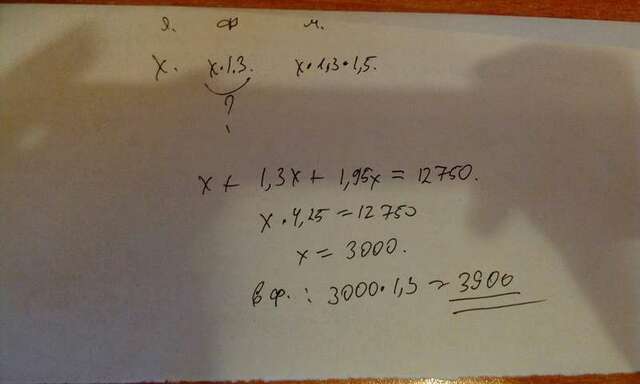 я. ф м.
x. x·1,3. x·1,3·1,5.
?
x + 1,3x + 1,95x = 12750.
x·4,25 = 12750
x = 3000.
в ф. : 3000·1,3 = 3900